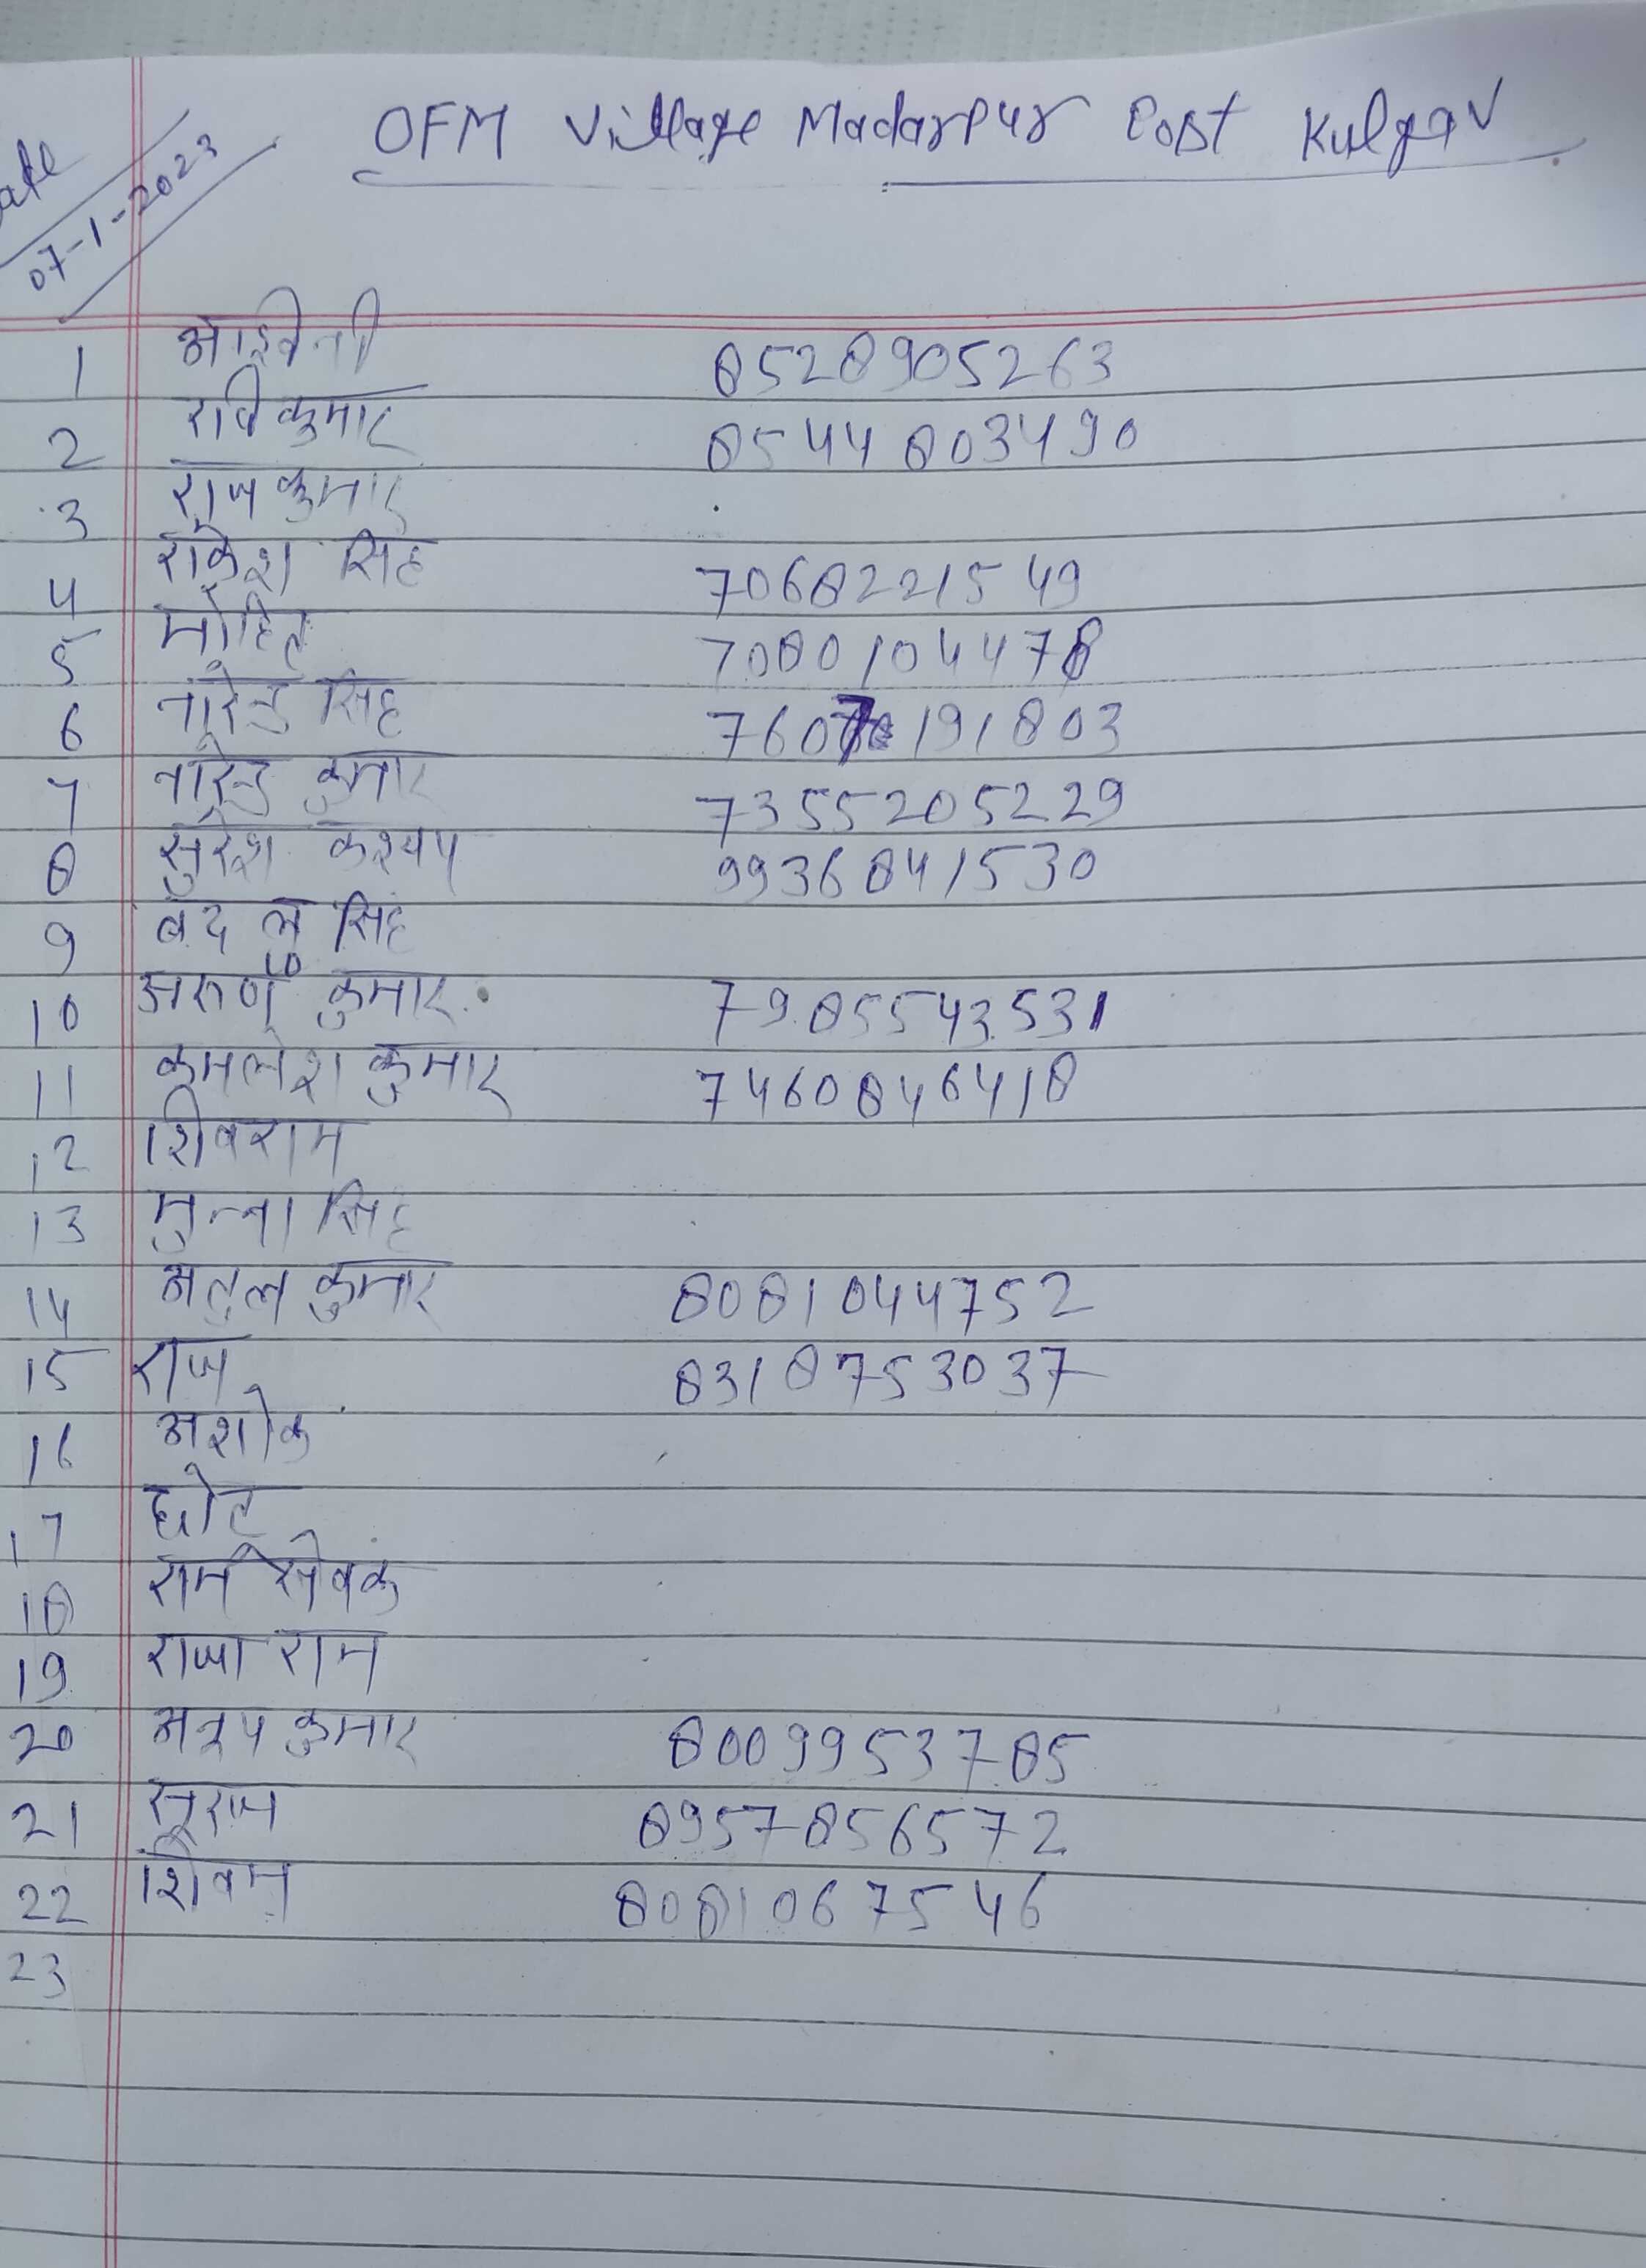 OFM Village Madarpur Post Kulgav
Date
07-1-2023
1 8528905263
2 रविकुमार 8544803490
3 राजकुमार
4 राकेश सिंह 7068221549
5 मोहित 7080104478
6 नारेन्द्र सिंह
7 नारेन्द्र कुमार 7355205229
8 सुरेश कश्यप 9936841530
9 बदलू सिंह
10 अरुण कुमार 7985543531
11 कमलेश कुमार 7460846418
12 शिवराम
13 मुन्ना सिंह
14 अतुल कुमार 8081044752
15 राज 8318753037
16 अशोक
17 छोटू
18 राम सेवक
19 राजा राम
20 कुमार 8009953785
21 सूरज 8957856572
22 शिवम 8081067546
23